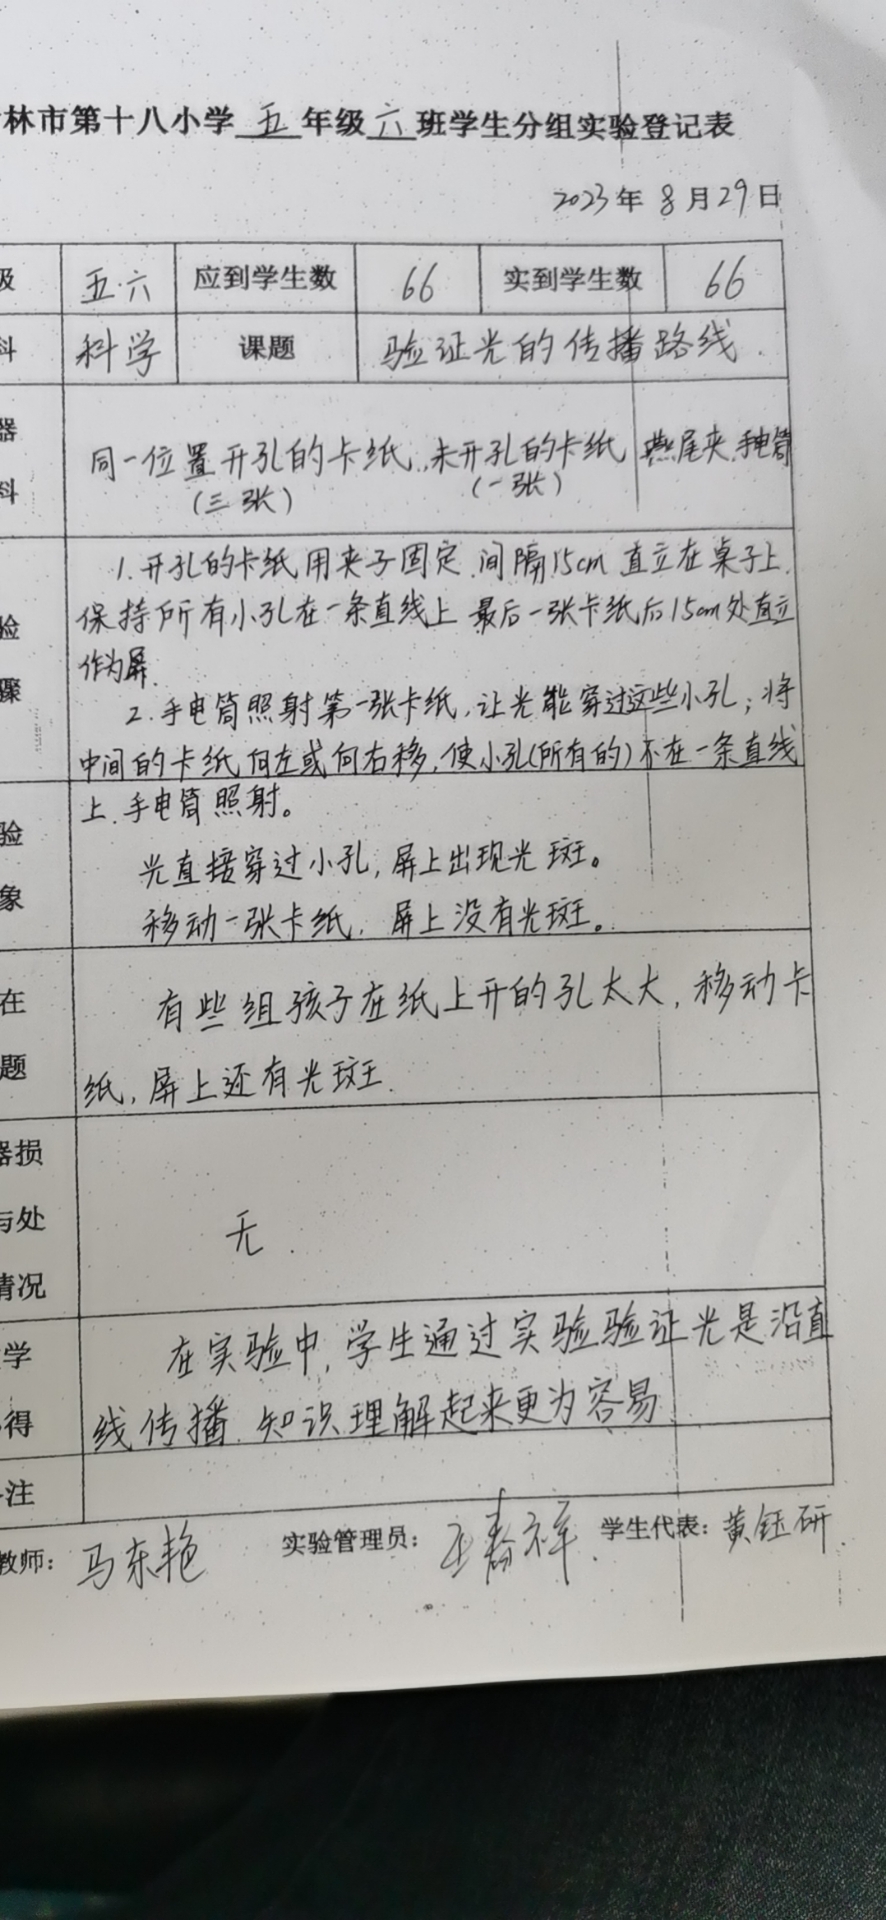 林市第十八小学五年级六班学生分组实验登记表
2023年8月29日
级 五·六 应到学生数 66 实到学生数 66
科 科学 课题 验证光的传播路线.
器
科
同一位置开孔的卡纸、未开孔的卡纸 燕尾夹、手电筒
(三张) (一张)
验
骤
1. 开孔的卡纸用夹子固定.间隔15cm直立在桌子上.
保持所有小孔在一条直线上 最后一张卡纸后15cm处直立
作为屏.
2. 手电筒照射第一张卡纸,让光能穿过这些小孔;将
中间的卡纸向左或向右移,使小孔(所有的)不在一条直线
上.手电筒照射。
验
象
光直接穿过小孔,屏上出现光斑。
移动一张卡纸,屏上没有光斑。
在
题
有些组孩子在纸上开的孔太大,移动卡
纸,屏上还有光斑.
器损
与处
情况
无.
学
得
在实验中,学生通过实验验证光是沿直
线传播.知识理解起来更为容易.
注
教师: 马东艳 实验管理员: 王春祥 学生代表: 黄钰研